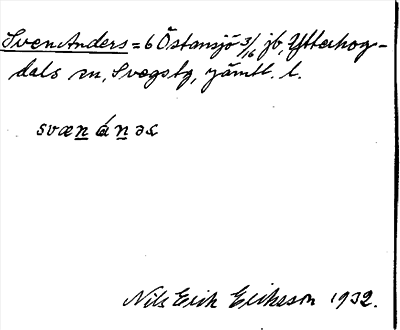 Sven Anders = 6 Östansjö 3/16 jb, Ytterhog-
dals sn, Svegs tg, Jämtl. l.
svæn ánəs
Nils Erik Eriksson 1932.